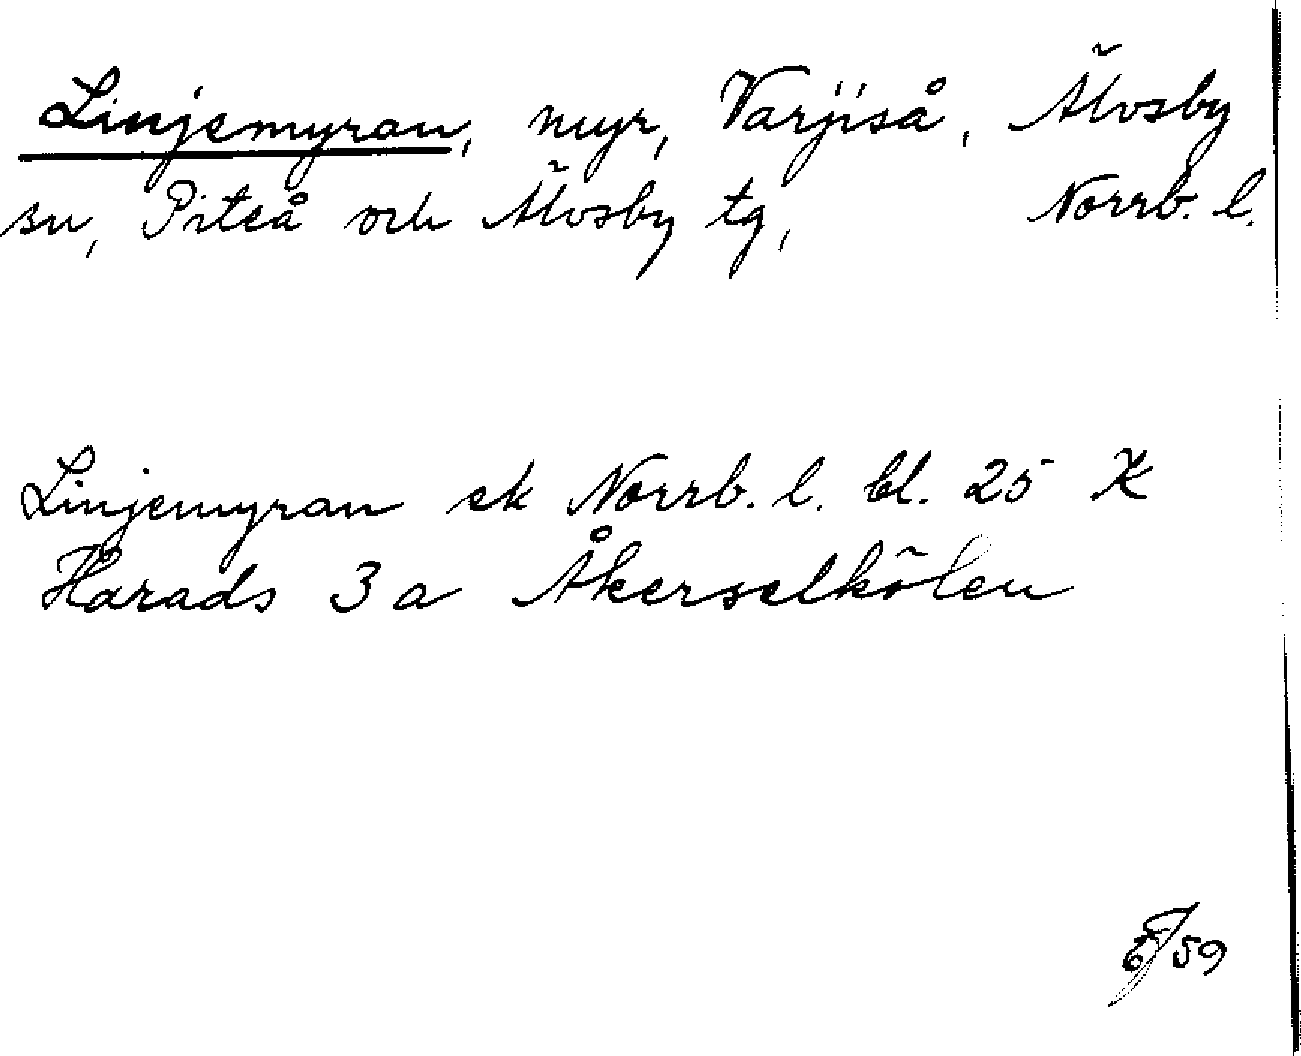 Linjemyran, myr, Varjiså, Älvsby
sn, Piteå och Älvsby tg, Norrb. l.
Linjemyran ek Norrb. l. bl. 25 K
Harads 3a Åkerselkölen
59